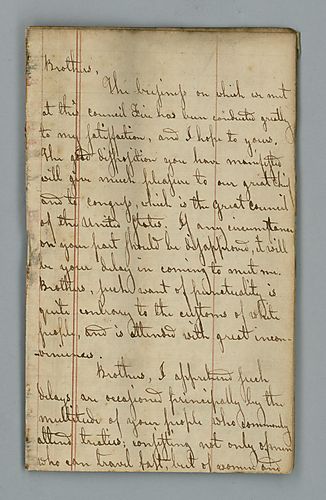 Brothers,
The business on which we met
at this council fire has been conducted greatly
to my satisfaction, and I hope to yours.
The good disposition you have manifested
will give much pleasure to our great chief
and to congress, which is the great council
of the United States. If any circumstance
on your part should be disapproved, it will
be your delay in coming to meet me.
Brothers, such want of punctuality is
quite contrary to the customs of white
people, and is attended with great incon-
veniences.
Brothers, I apprehend such
delays are occasioned principally by the
multitude of your people who commonly
attend treaties; consisting not only of men
who can travel fast, but of women and